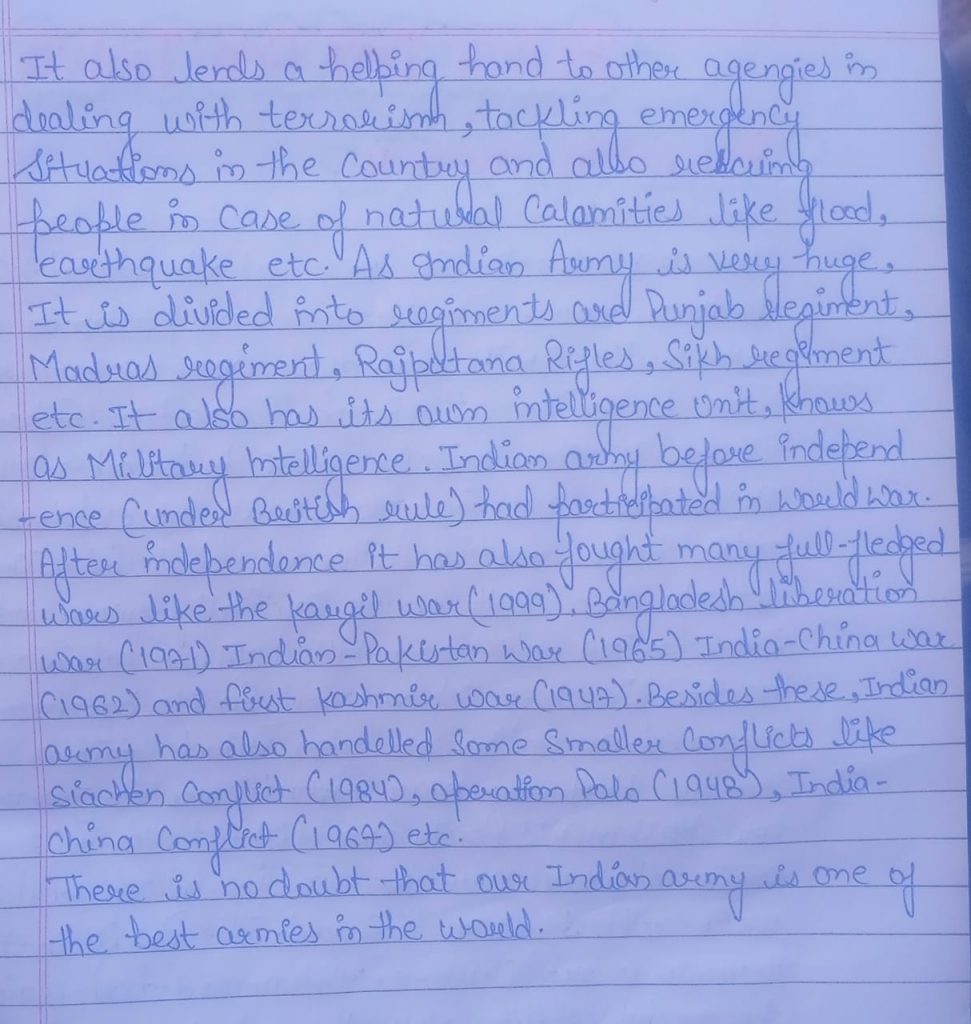 It also lends a helping hand to other agengies in
dealing with terrorism, tackling emergency
situations in the Country and also rescuing
people in case of natural Calamities like flood,
earthquake etc. As Indian Army is very huge,
It is divided into regiments are Punjab Regiment,
Madras regiment, Rajputana Rifles, Sikh regiment
etc. It also has its own intelligence unit, Knows
as Military Intelligence. Indian army before independ
-ence (under British rule) had participated in world war.
After independence it has also fought many full-fledged
wars like the kargil war (1999). Bangladesh liberation
war (1971) Indian-Pakistan war (1965) India-China war
(1962) and first Kashmir war (1947). Besides these, Indian
army has also handelled Some Smaller Conflicts like
Siachen Conflict (1984), operation Polo (1948), India-
China Conflict (1967) etc.
There is no doubt that our Indian army is one of
the best armies in the world.